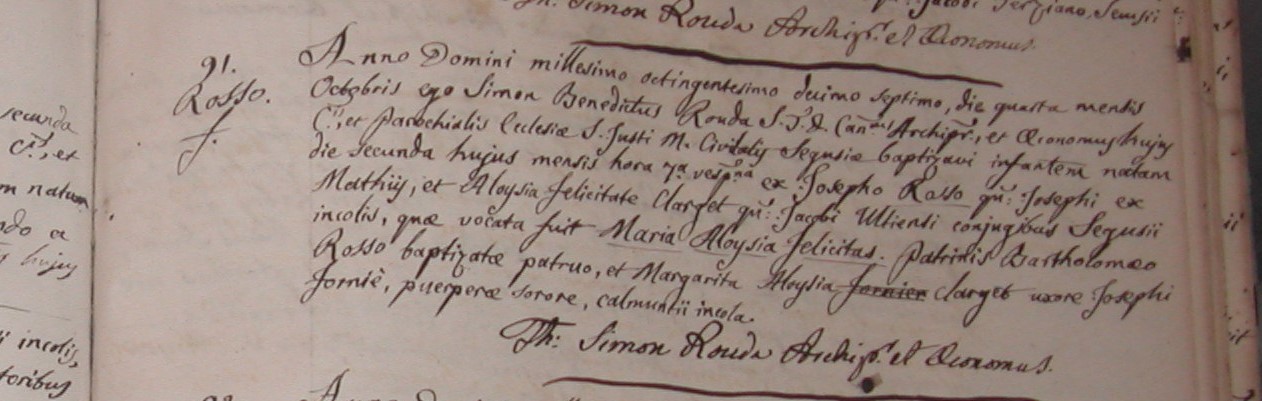 Th: Simon Rouda Archipr. et Œconomus.
91.
Rosso.
f.
Anno Domini millesimo octingentesimo decimo septimo, die quarta mensis
Octobris ego Simon Benedictus Rouda S.T.D. Can.cus Archipr., et Œconomus hujus
C.ti, et Parochialis Ecclesiæ S. Justi M. Civitatis Segusiæ baptizavi infantem natam
die secunda hujus mensis hora 7.a vesp.na ex Josepho Rosso qm: Josephi ex
Mathiis, et Aloysia Felicitate Clarget qm: Jacobi Ultiensi conjugibus Segusii
incolis, quæ vocata fuit Maria Aloysia Felicitas. Patrinis Bartholomæo
Rosso baptizatæ patruo, et Margarita Aloysia Fornier Clarget uxore Josephi
Forniè, puerperæ sorore, calmuntii incola.
Th: Simon Rouda Archipr. et Œconomus.
secunda
C.ti, et
m natum
hujus
i incolis,
toribus
Anno